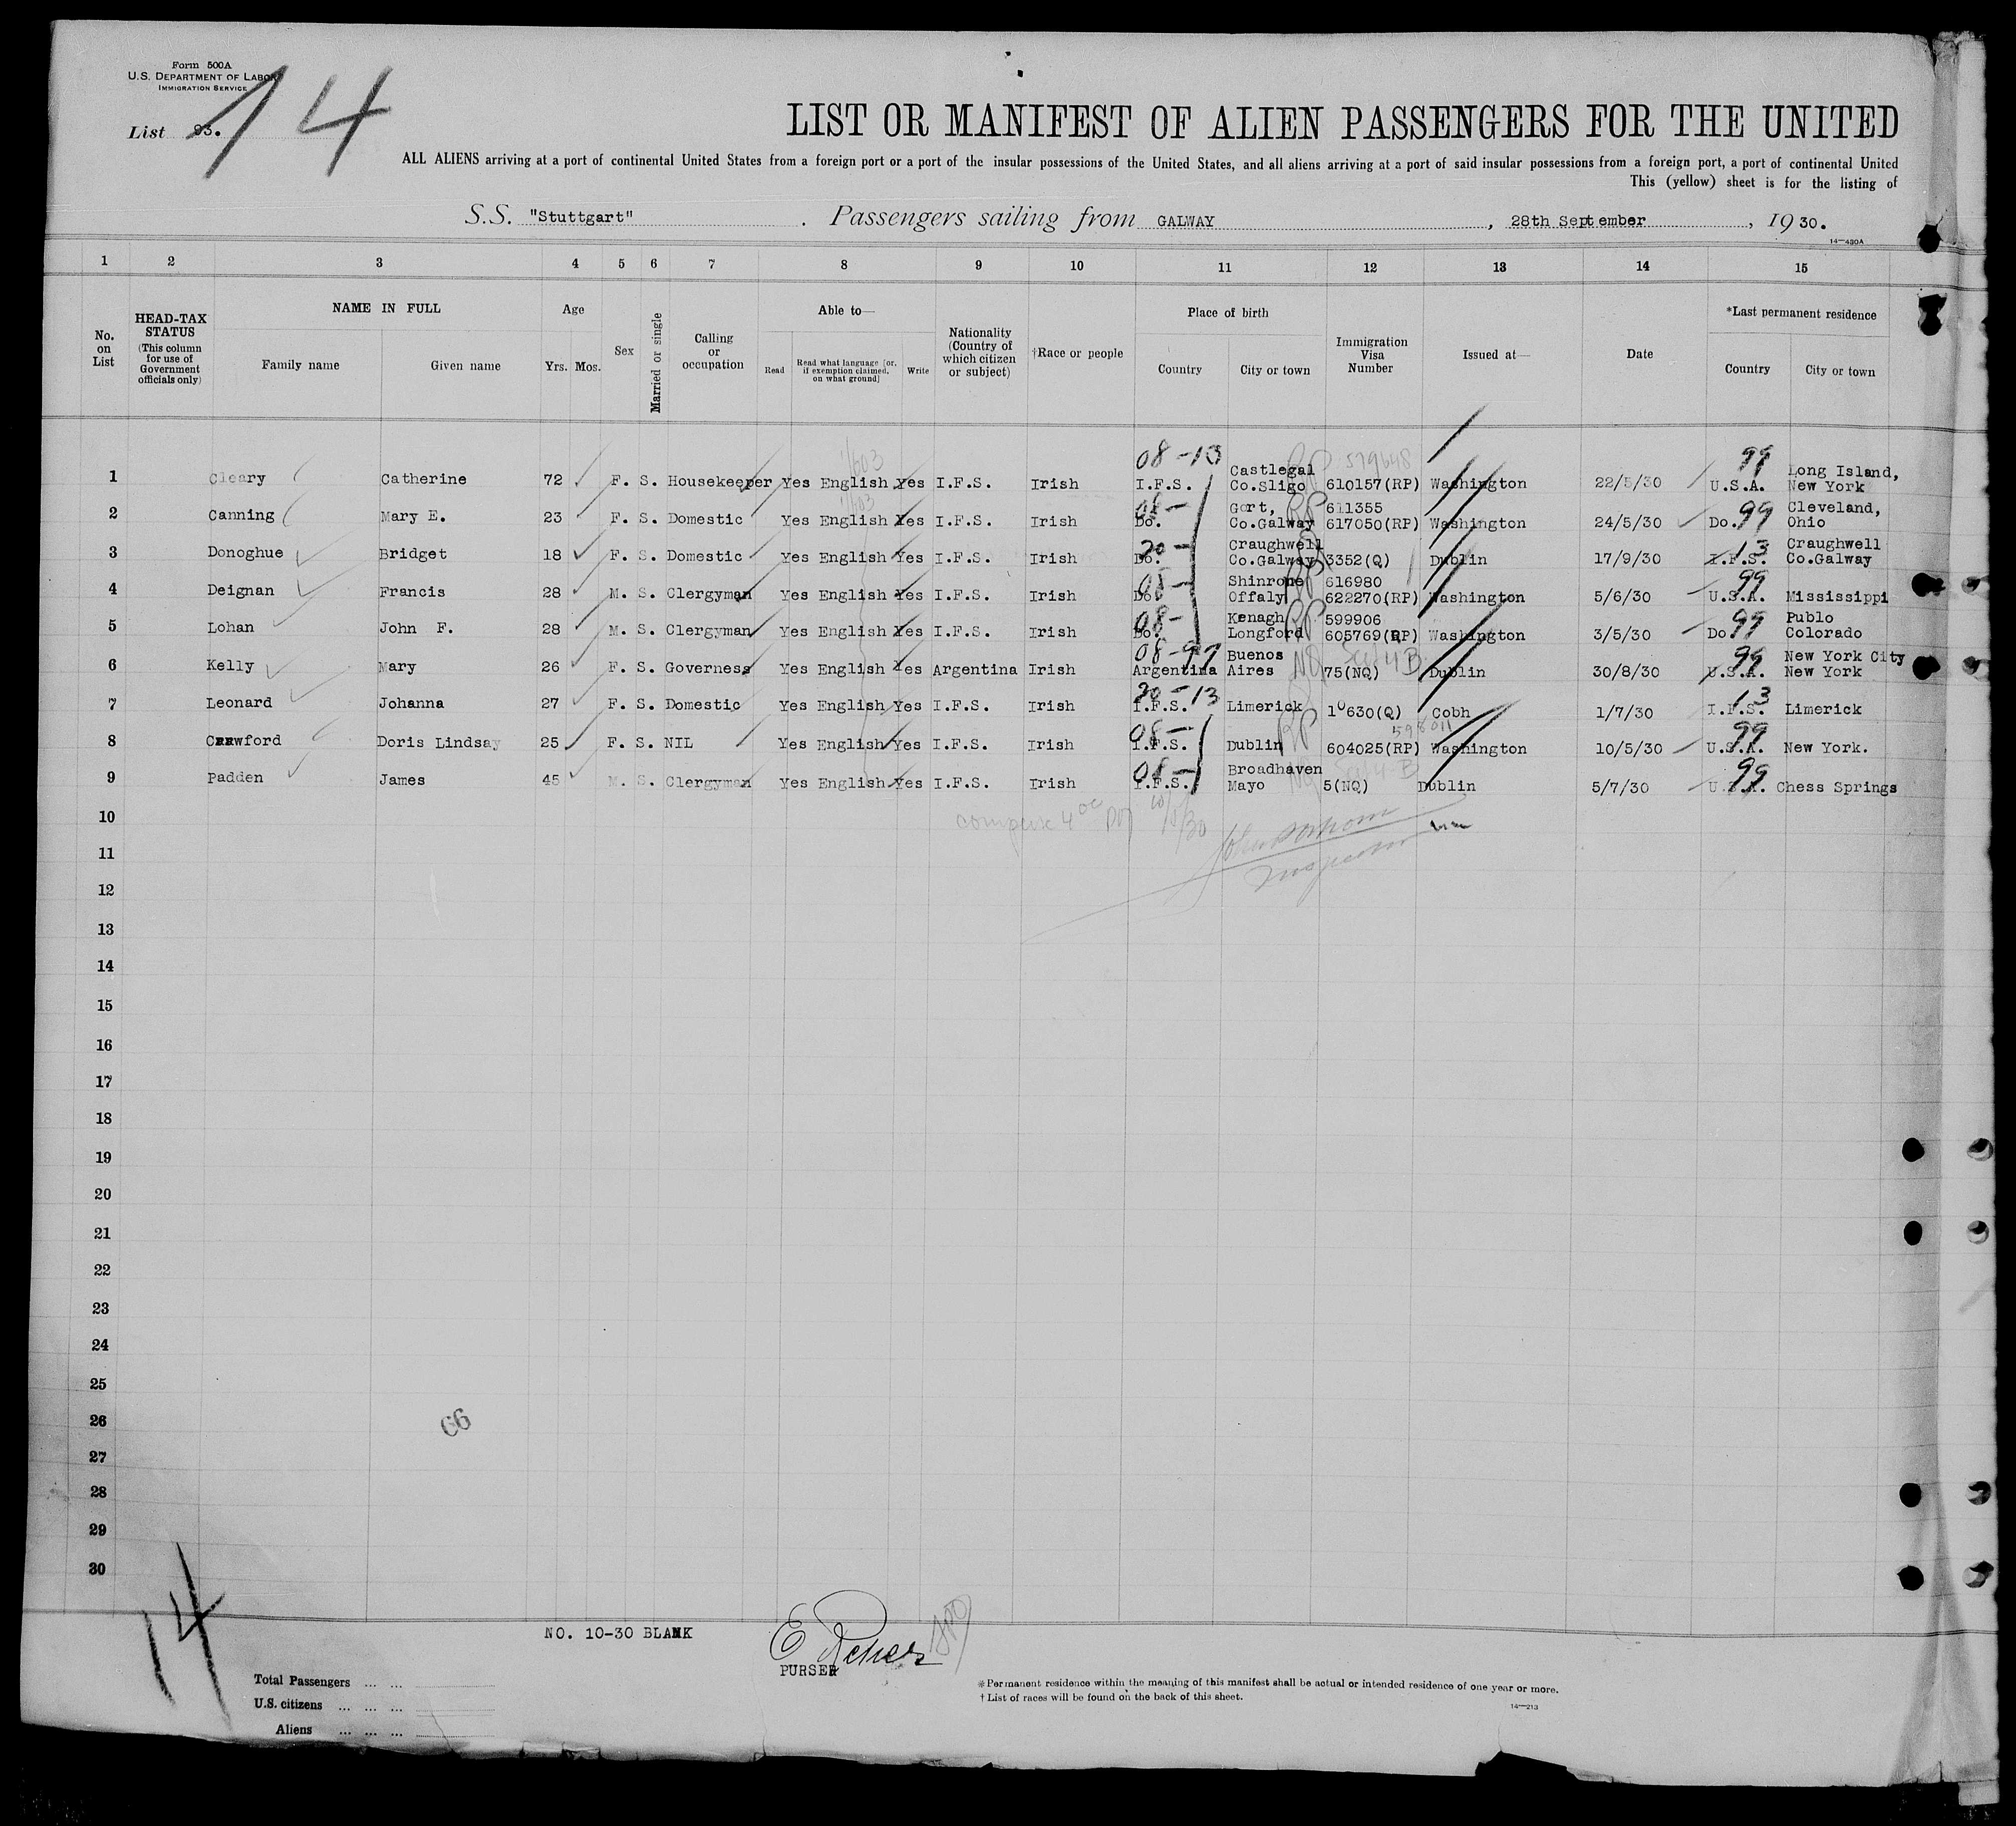 Form 500A
U.S. DEPARTMENT OF LABOR
IMMIGRATION SERVICE
List 93.
14
LIST OR MANIFEST OF ALIEN PASSENGERS FOR THE UNITED
ALL ALIENS arriving at a port of continental United States from a foreign port or a port of the insular possessions of the United States, and all aliens arriving at a port of said insular possessions from a foreign port, a port of continental United
This (yellow) sheet is for the listing of
S.S. "Stuttgart" . Passengers sailing from GALWAY , 28th September , 1930.
14—430A
1 2 3 4 5 6 7 8 9 10 11 12 13 14 15
No. on List
HEAD-TAX STATUS (This column for use of Government officials only)
NAME IN FULL
Family name Given name
Age
Yrs. Mos.
Sex
Married or single
Calling or occupation
Able to—
Read Read what language [or, if exemption claimed, on what ground] Write
Nationality (Country of which citizen or subject)
†Race or people
Place of birth
Country City or town
Immigration Visa Number
Issued at—
Date
*Last permanent residence
Country City or town
1603 08-13 Castlegal RP 579648 99 Long Island,
1 Cleary Catherine 72 F. S. Housekeeper Yes English Yes I.F.S. Irish I.F.S. Co.Sligo 610157(RP) Washington 22/5/30 U.S.A. New York
1603 08- Gort, RP 611355 99 Cleveland,
2 Canning Mary E. 23 F. S. Domestic Yes English Yes I.F.S. Irish Do. Co.Galway 617050(RP) Washington 24/5/30 Do. Ohio
20- Craughwell 13 Craughwell
3 Donoghue Bridget 18 F. S. Domestic Yes English Yes I.F.S. Irish Do. Co.Galway 3352(Q) Dublin 17/9/30 I.F.S. Co.Galway
08- Shinrone RP 616980 99
4 Deignan Francis 28 M. S. Clergyman Yes English Yes I.F.S. Irish Do. Offaly 622270(RP) Washington 5/6/30 U.S.A. Mississippi
08- Kenagh RP 599906 99 Publo
5 Lohan John F. 28 M. S. Clergyman Yes English Yes I.F.S. Irish Do. Longford 605769(RP) Washington 3/5/30 Do Colorado
08-97 Buenos NQ 4B 99 New York City
6 Kelly Mary 26 F. S. Governess Yes English Yes Argentina Irish Argentina Aires 75(NQ) Dublin 30/8/30 U.S.A. New York
20-13 13
7 Leonard Johanna 27 F. S. Domestic Yes English Yes I.F.S. Irish I.F.S. Limerick 10630(Q) Cobh 1/7/30 I.F.S. Limerick
08- RP 598011 99
8 Crawford Doris Lindsay 25 F. S. NIL Yes English Yes I.F.S. Irish I.F.S. Dublin 604025(RP) Washington 10/5/30 U.S.A. New York.
08- Broadhaven NQ 4-B 99
9 Padden James 45 M. S. Clergyman Yes English Yes I.F.S. Irish I.F.S. Mayo 5(NQ) Dublin 5/7/30 U.S.A. Chess Springs
10
11
12
13
14
15
16
17
18
19
20
21
22
23
24
25
26
66
27
28
29
30
14
NO. 10-30 BLANK
PURSER
Total Passengers
U.S. citizens
Aliens
*Permanent residence within the meaning of this manifest shall be actual or intended residence of one year or more.
† List of races will be found on the back of this sheet.
14—213